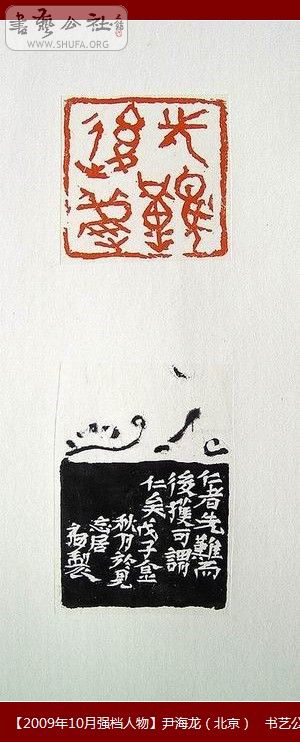 書藝公社
WWW.SHUFA.ORG
先難
後獲
仁者先難而
後獲可謂
仁矣戊子孟
秋刀於見
忘居
製
【2009年10月强档人物】尹海龙（北京） 书艺公